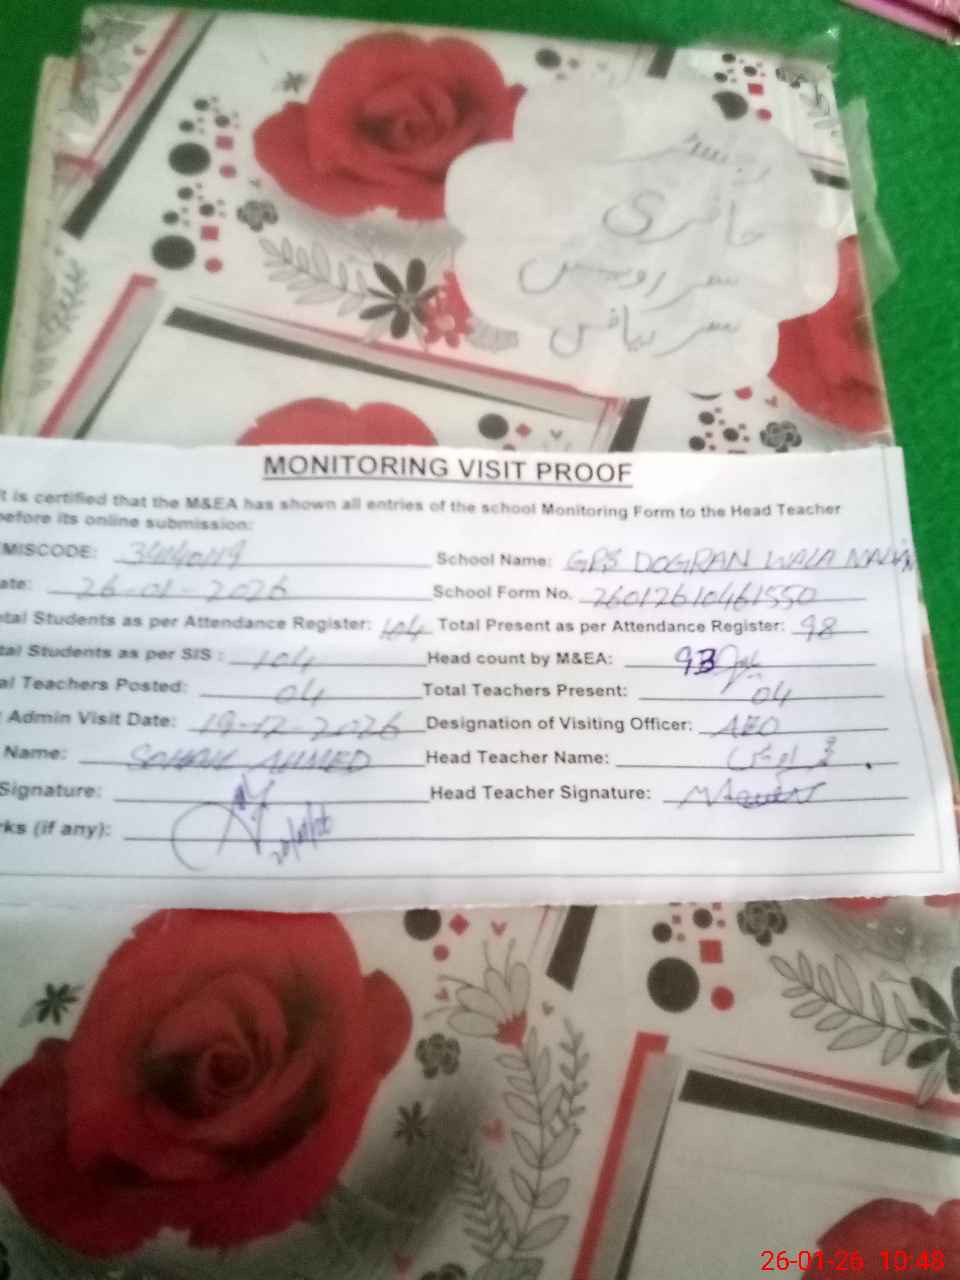 رجسٹر
حاضری
MONITORING VISIT PROOF
It is certified that the M&EA has shown all entries of the school Monitoring Form to the Head Teacher
before its online submission:
MISCODE: School Name: GPS DOGRAN WALA
ate: 26-01-2026 School Form No. 26012610461550
tal Students as per Attendance Register: 104 Total Present as per Attendance Register: 98
tal Students as per SIS : 104 Head count by M&EA: 93
al Teachers Posted: 04 Total Teachers Present: 04
Admin Visit Date: 19-12-2026 Designation of Visiting Officer: AEO
Name: AHMED Head Teacher Name:
Signature: Head Teacher Signature:
rks (if any):
26-01-26 10:48